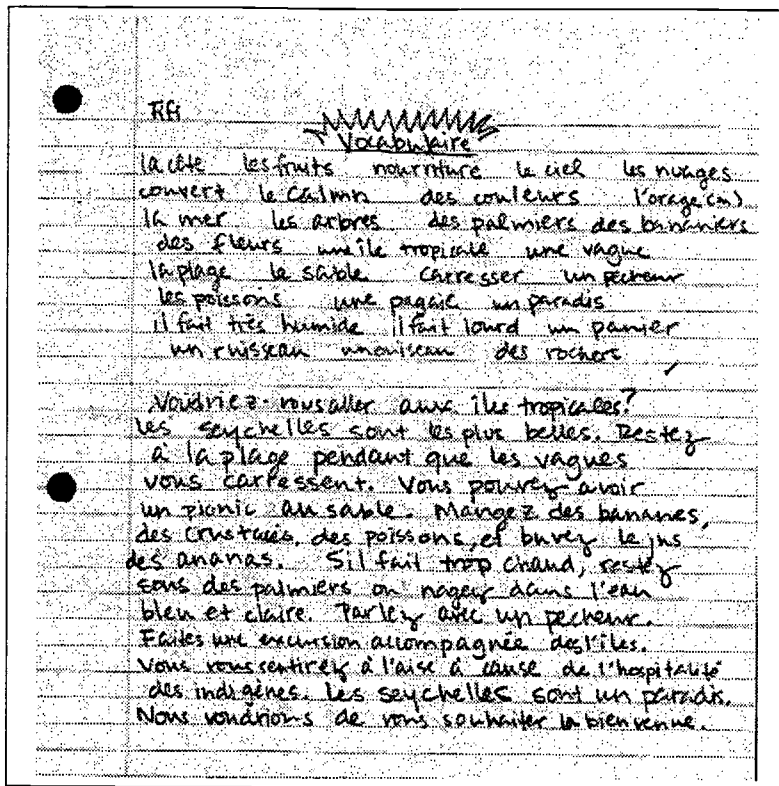 Fifi
Vocabulaire
la côte les fruits nourriture le ciel les nuages
couvert le calme des couleurs l'orage (m)
la mer les arbres des palmiers des bananiers
des fleurs une île tropicale une vague
la plage le sable carresser un pecheur
les poissons une pagaie un paradis
il fait très humide il fait lourd un panier
un ruisseau un oiseau des rochers
Voudriez-vous aller aux îles tropicales?
Les seychelles sont les plus belles. Restez
à la plage pendant que les vagues
vous carressent. Vous pouvez avoir
un picnic au sable. Mangez des bananes,
des crustacés, des poissons, et buvez le jus
des ananas. S'il fait trop chaud, restez
sous des palmiers ou nagez dans l'eau
bleu et claire. Parlez avec un pecheur.
Faites une excursion accompagnée des l'îles.
Vous vous sentirez à l'aise à cause de l'hospitalité
des indigènes. Les seychelles sont un paradis.
Nous voudrions de vous souhaiter la bienvenue.